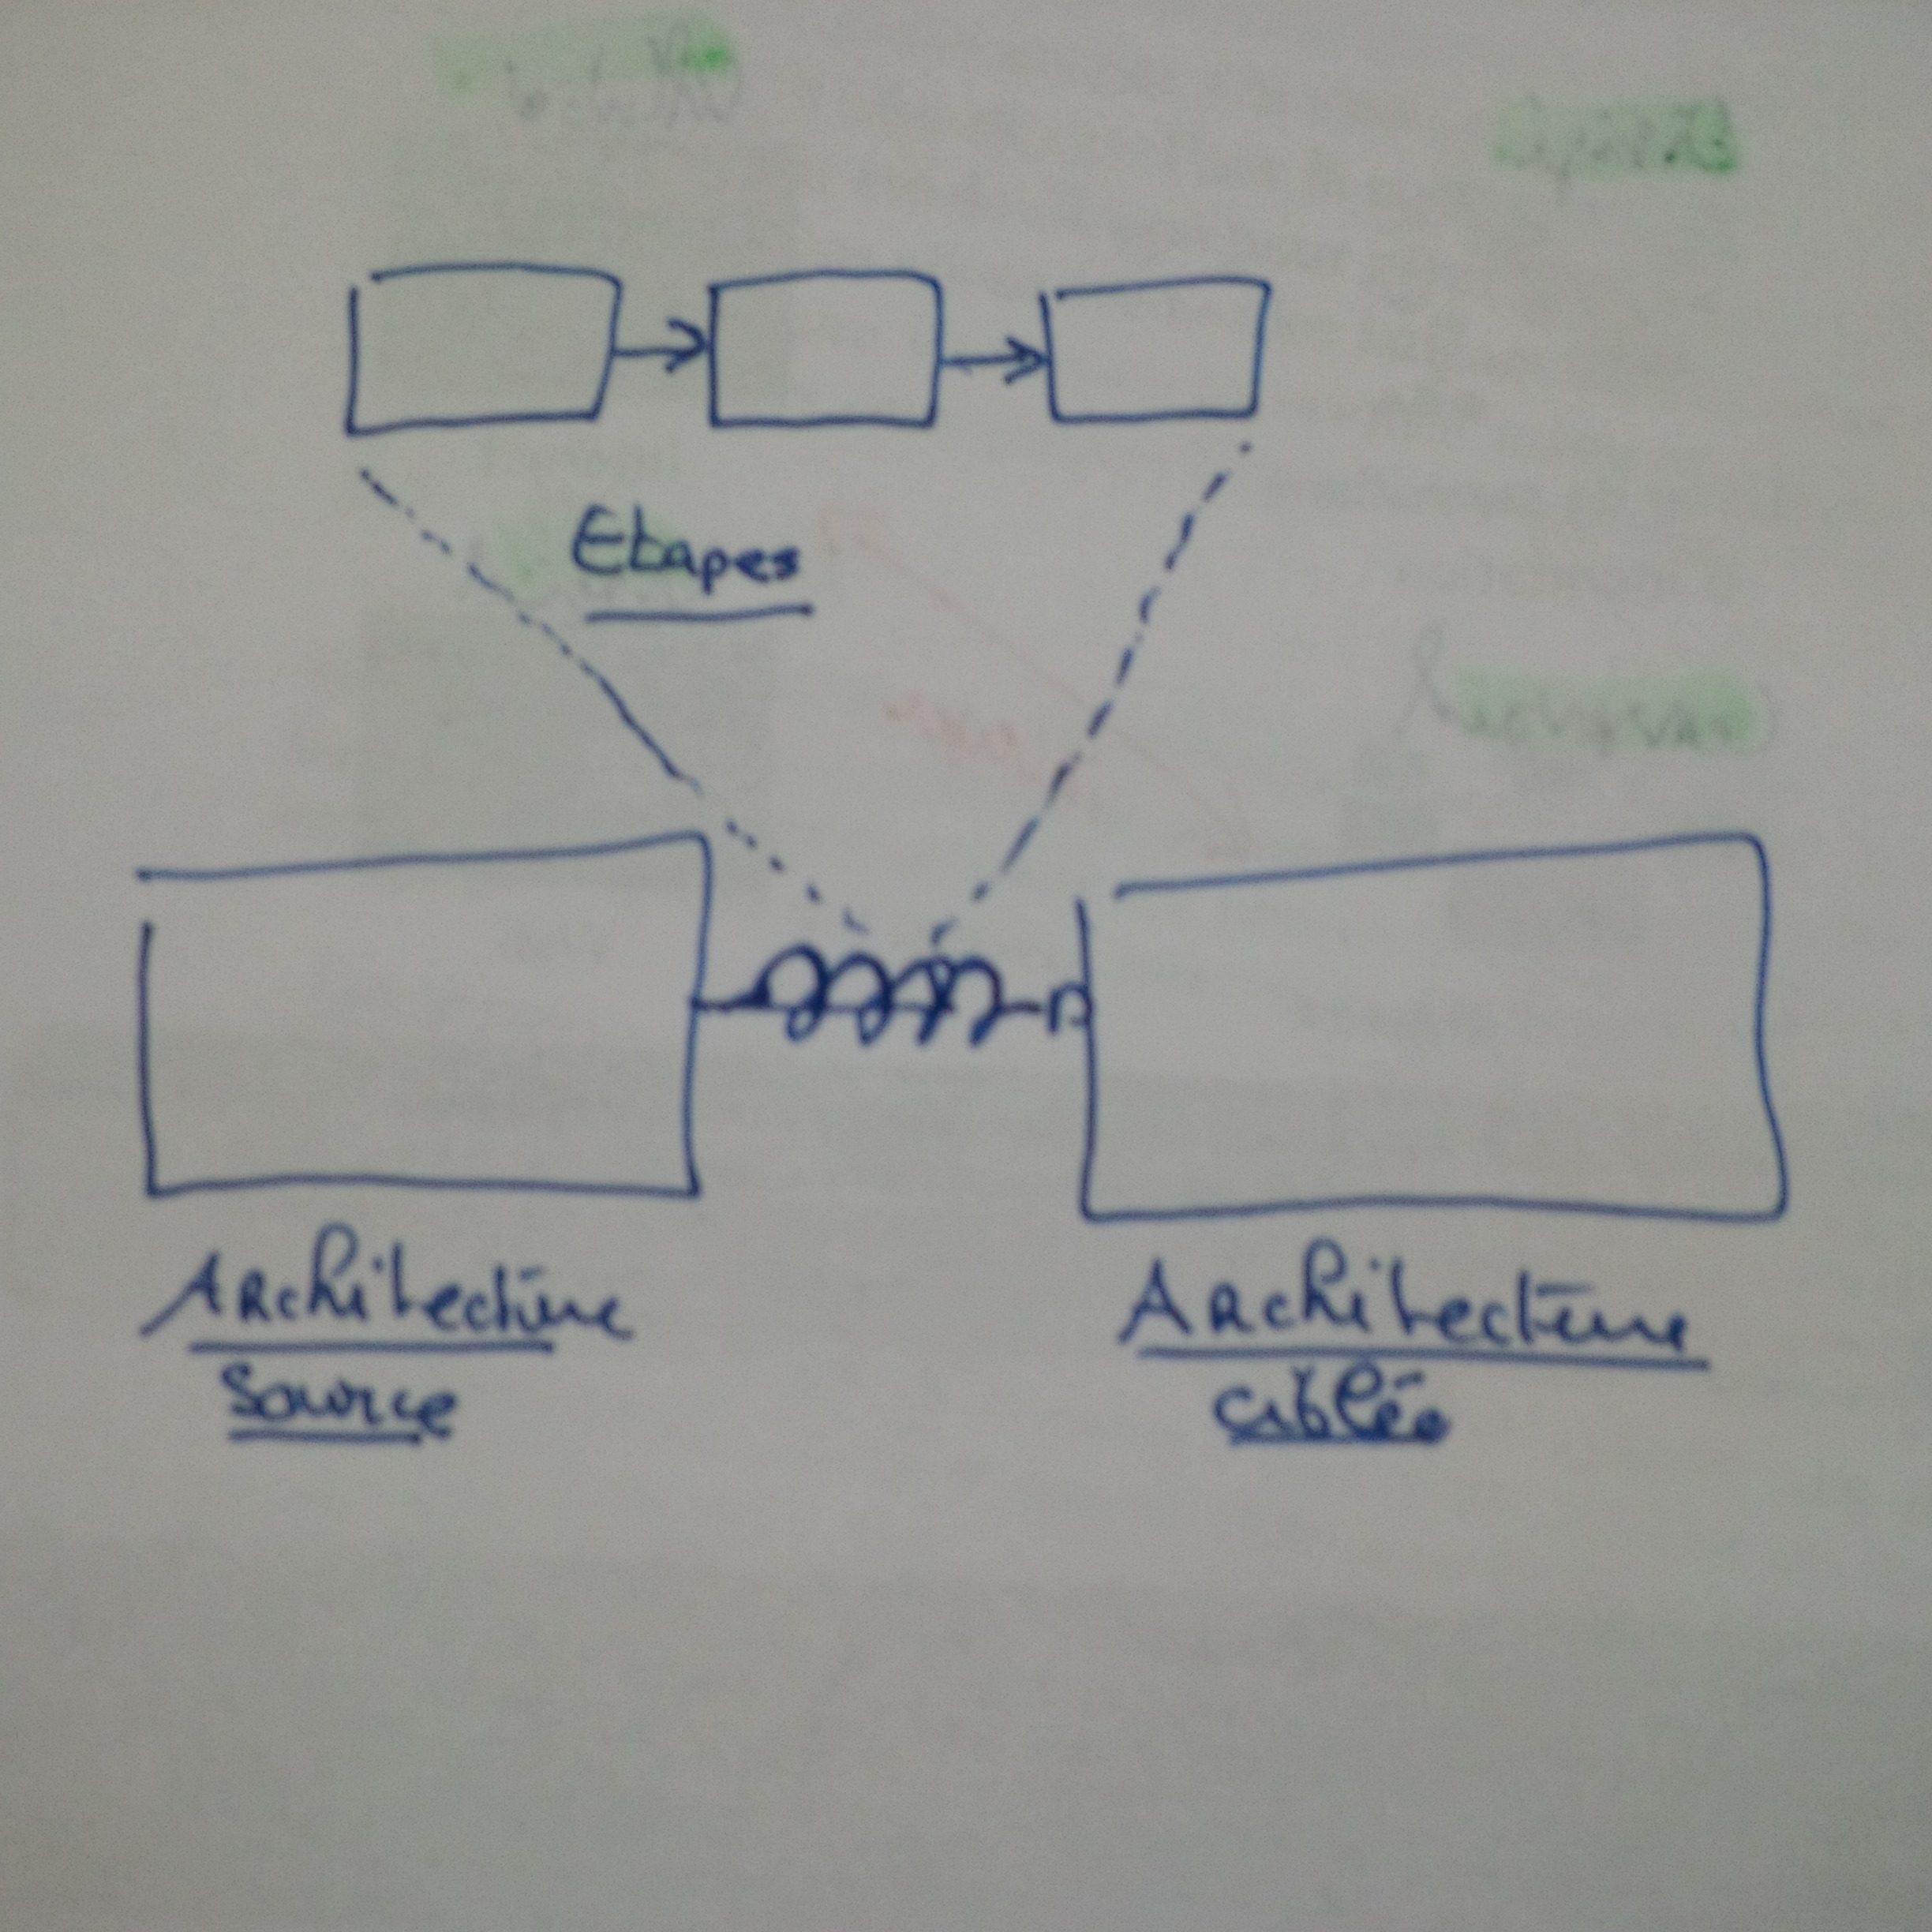 Etapes
Architecture
Source
Architecture
ciblée